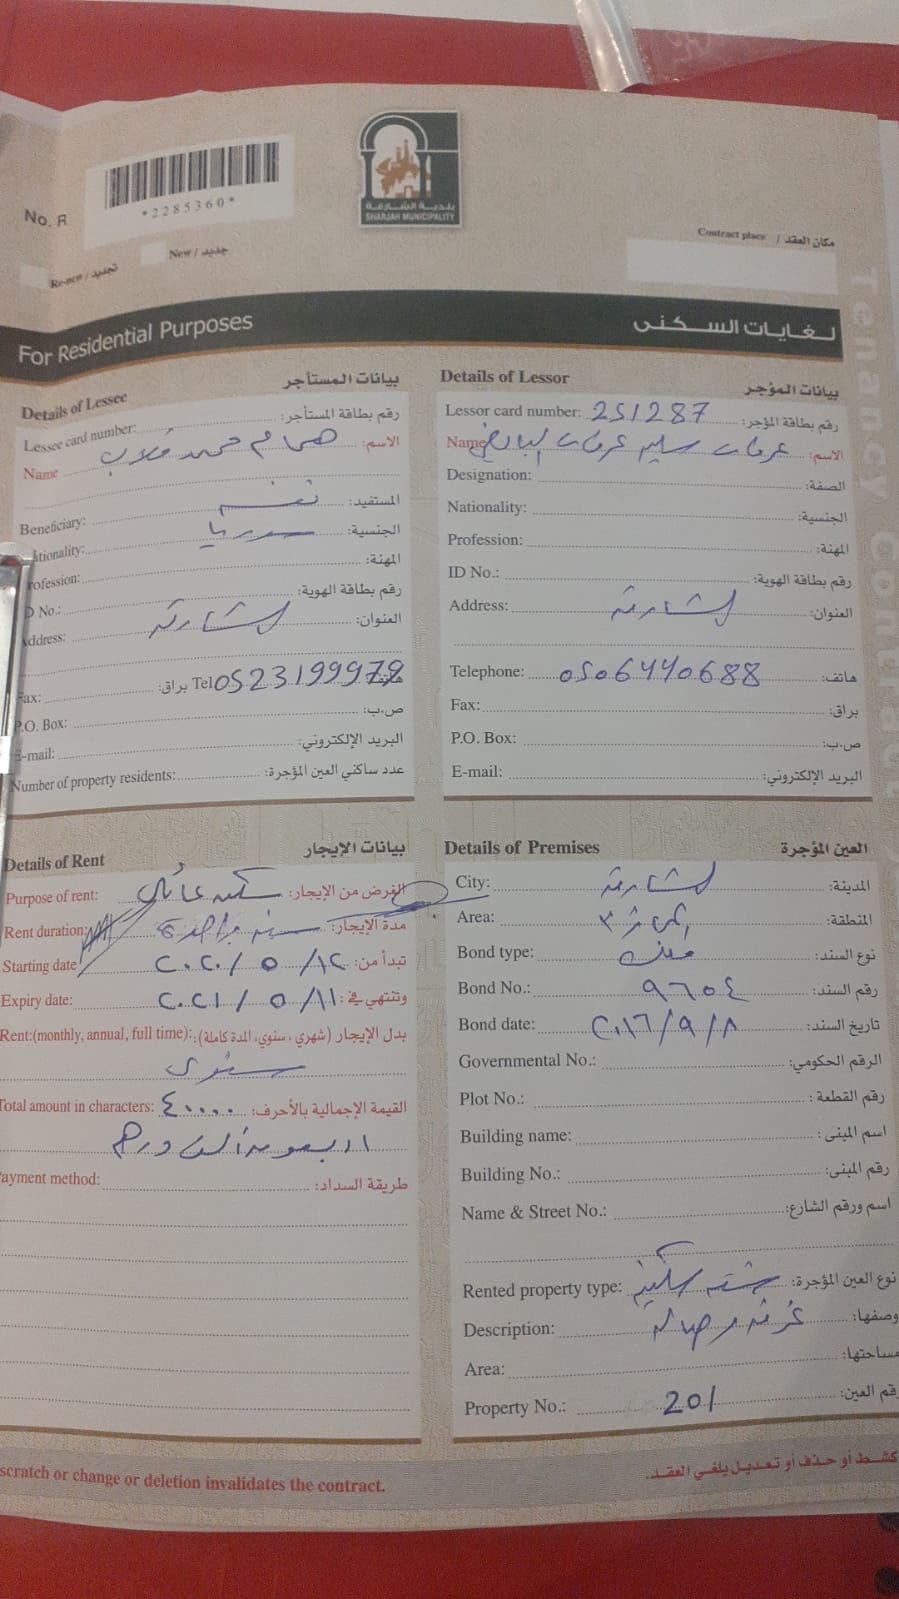 بلدية الشارقة
SHARJAH MUNICIPALITY
No. R
*2285360*
Re-new / تجديد
New / جديد
Contract place / مكان العقد
Tenancy Contract
For Residential Purposes لغايات السكنى
Details of Lessee بيانات المستأجر
Lessee card number: رقم بطاقة المستأجر:
Name همام محمد الاسم:
Beneficiary: المستفيد:
ationality: سوريا الجنسية:
rofession: المهنة:
D No.: رقم بطاقة الهوية:
ddress: الشارقة العنوان:
ax: براق: Tel 0523199979
P.O. Box: ص.ب:
E-mail: البريد الإلكتروني:
Number of property residents: عدد ساكني العين المؤجرة:
Details of Lessor بيانات المؤجر
Lessor card number: 251287 رقم بطاقة المؤجر:
Name عرفات سليم عرفات الاسم:
Designation: الصفة:
Nationality: الجنسية:
Profession: المهنة:
ID No.: رقم بطاقة الهوية:
Address: الشارقة العنوان:
Telephone: 0506440688 هاتف:
Fax: براق:
P.O. Box: ص.ب:
E-mail: البريد الإلكتروني:
Details of Rent بيانات الإيجار
Purpose of rent: سكن عائلي الغرض من الإيجار:
Rent duration: سنة واحدة مدة الإيجار:
Starting date ٢٠٢٠/٥/١٢ تبدأ من:
Expiry date: ٢٠٢١/٥/١١ وتنتهي في:
Rent:(monthly, annual, full time): بدل الإيجار (شهري، سنوي، المدة كاملة):
سنوي
Total amount in characters: ٤٠٠٠٠ القيمة الإجمالية بالأحرف:
اربعون ألف درهم
ayment method: طريقة السداد:
Details of Premises العين المؤجرة
City: الشارقة المدينة:
Area: المنطقة:
Bond type: ملك نوع السند:
Bond No.: ٩٦٥٤ رقم السند:
Bond date: ٢٠١٦/٩/٨ تاريخ السند:
Governmental No.: الرقم الحكومي:
Plot No.: رقم القطعة:
Building name: اسم المبنى:
Building No.: رقم المبنى:
Name & Street No.: اسم ورقم الشارع:
Rented property type: شقة سكنية نوع العين المؤجرة:
Description: غرفة وصالة وصفها:
Area: مساحتها:
Property No.: 201 قم العين:
scratch or change or deletion invalidates the contract. كشط أو حذف أو تعديل يلغي العقد.